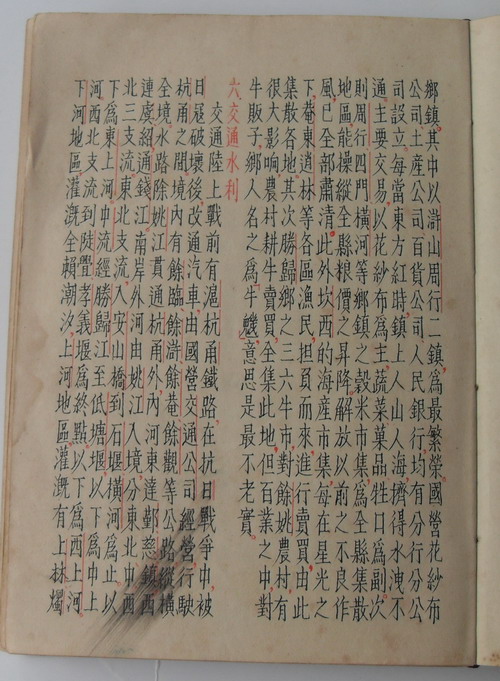 鄉鎮。其中以滸山周行二鎮，為最繁榮。國營花紗布
公司土產公司百貨公司，人民銀行，均有分行分公
司設立，每當東方紅時，鎮上人山人海，擠得水洩不
通。主要交易，以花紗布為主，蔬菜菓品牲口為副。次
則周行四門橫河等鄉鎮之穀米市集，為全縣集散
地區，能操縱全縣粮價之昇降。解放以前之不良作
風，已全部肅清。此外坎西的海產市集，每在星光之
下，菴東逍林等各區漁民担負而來，進行賣買，由此
集散各地。其次勝歸鄉之三六牛市，對餘姚農村，有
很大影响，農村耕牛賣買，全集此地。但百業之中，對
牛販子，鄉人名之為牛，意思是最不老實。
六、交通水利
交通陸上戰前有滬杭甬鐵路，在抗日戰爭中，被
日寇破壞後，改通汽車，由國營交通公司經營行駛
杭甬之間。境內有餘臨餘滸餘菴餘觀等公路，縱橫
全境。水路除姚江貫通杭甬外，內河東達鄞慈鎮，西
連虞紹，通錢江南岸。外河由姚江入境，分東北中西
北三支流。東北支流，入安山橋到石堰橫河為止，以
下為東上河。中流經勝歸江至低塘堰以下為中上
河。西北支流到陡亹孝義堰為終點，以下為西上河。
下河地區，灌溉全賴潮汐，上河地區，灌溉有上林燭